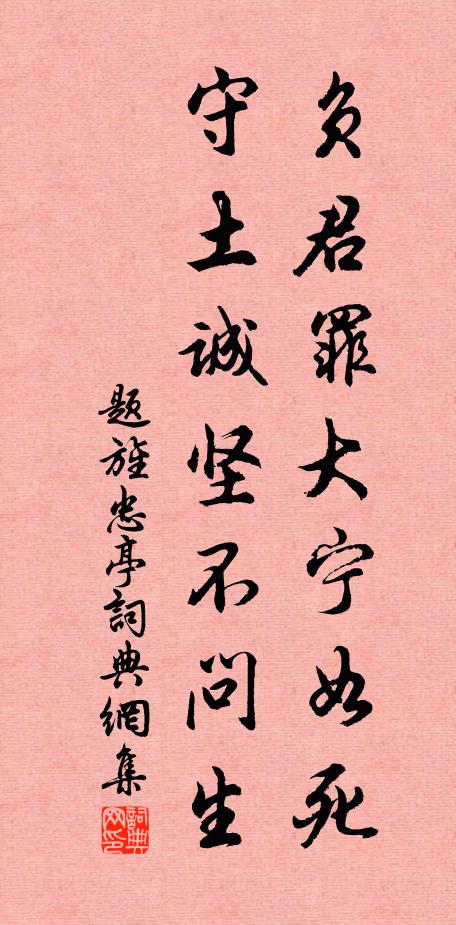 负君罪大宁如死
守土诚坚不问生
题旌忠亭詞典網集
詞典网印